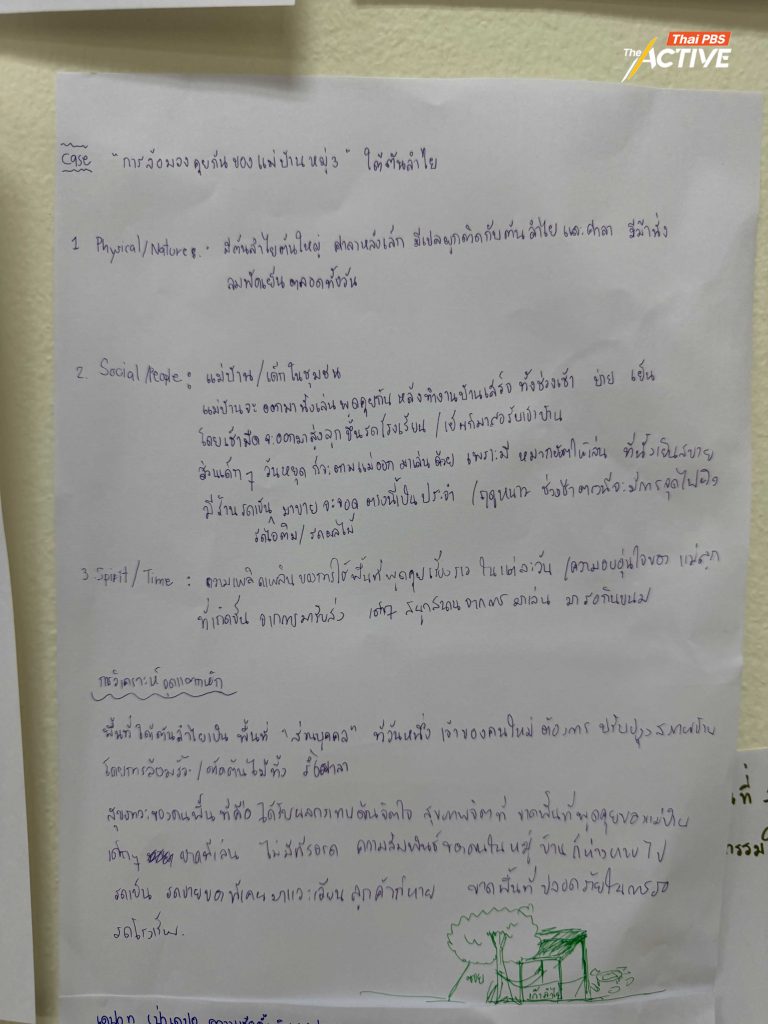 Thai PBS
The ACTIVE
Case "การล้อมวงคุยกันของแม่บ้านหมู่3" ใต้ต้นลำไย
1 Physical/Nature : มีต้นลำไยต้นใหญ่ ศาลาหลังเล็ก มีเปลผูกติดกับต้นลำไยและศาลา มีม้านั่ง
ลมพัดเย็นตลอดทั้งวัน
2. Social/People : แม่บ้าน/เด็กในชุมชน
แม่บ้านจะออกมานั่งเล่นพูดคุยกัน หลังทำงานบ้านเสร็จ ทั้งช่วงเช้า บ่าย เย็น
โดยเช้ามืดจะออกมาส่งลูกขึ้นรถโรงเรียน /เย็นก็มารอรับเข้าบ้าน
ส่วนเด็กๆ วันหยุด ก็จะตามแม่ออกมาเล่นด้วย เพราะมี ให้เล่น ที่นั่งเย็นสบาย
มีร้านรถเข็น มาขายจะจอดตรงนี้เป็นประจำ /ฤดูหนาว ช่วงเช้าตรงนี้จะมีการจุดไฟผิง
รถไอติม/รถผลไม้
3. Spirit/Time : ความเพลิดเพลินของการใช้พื้นที่พูดคุยเรื่องราวในแต่ละวัน /ความอบอุ่นใจของ แม่ลูก
ที่เกิดขึ้น จากการมารับส่ง เด็กๆ สนุกสนานจากการมาเล่น มารอกินขนม
การวิเคราะห์จุดแตกหัก
พื้นที่ใต้ต้นลำไยเป็น พื้นที่ "ส่วนบุคคล" ที่วันหนึ่ง เจ้าของคนใหม่ต้องการ ปรับปรุง
โดยการล้อมรั้ว /ตัดต้นไม้ทิ้ง รื้อศาลา
สุขภาวะของคนพื้นที่คือ ได้รับผลกระทบด้านจิตใจ สุขภาพจิตที่ ขาดพื้นที่พูดคุยของแม่บ้าน
เด็กๆ ขาดที่เล่น ไม่มีที่รอรถ ความสัมพันธ์ของคนในหมู่บ้านก็ห่างหายไป
รถเข็น รถขายของที่เคยมาแวะเวียน ลูกค้าก็หาย ขาดพื้นที่ปลอดภัยในการรอ
รถโรงเรียน.
ซอย
เก้าอี้